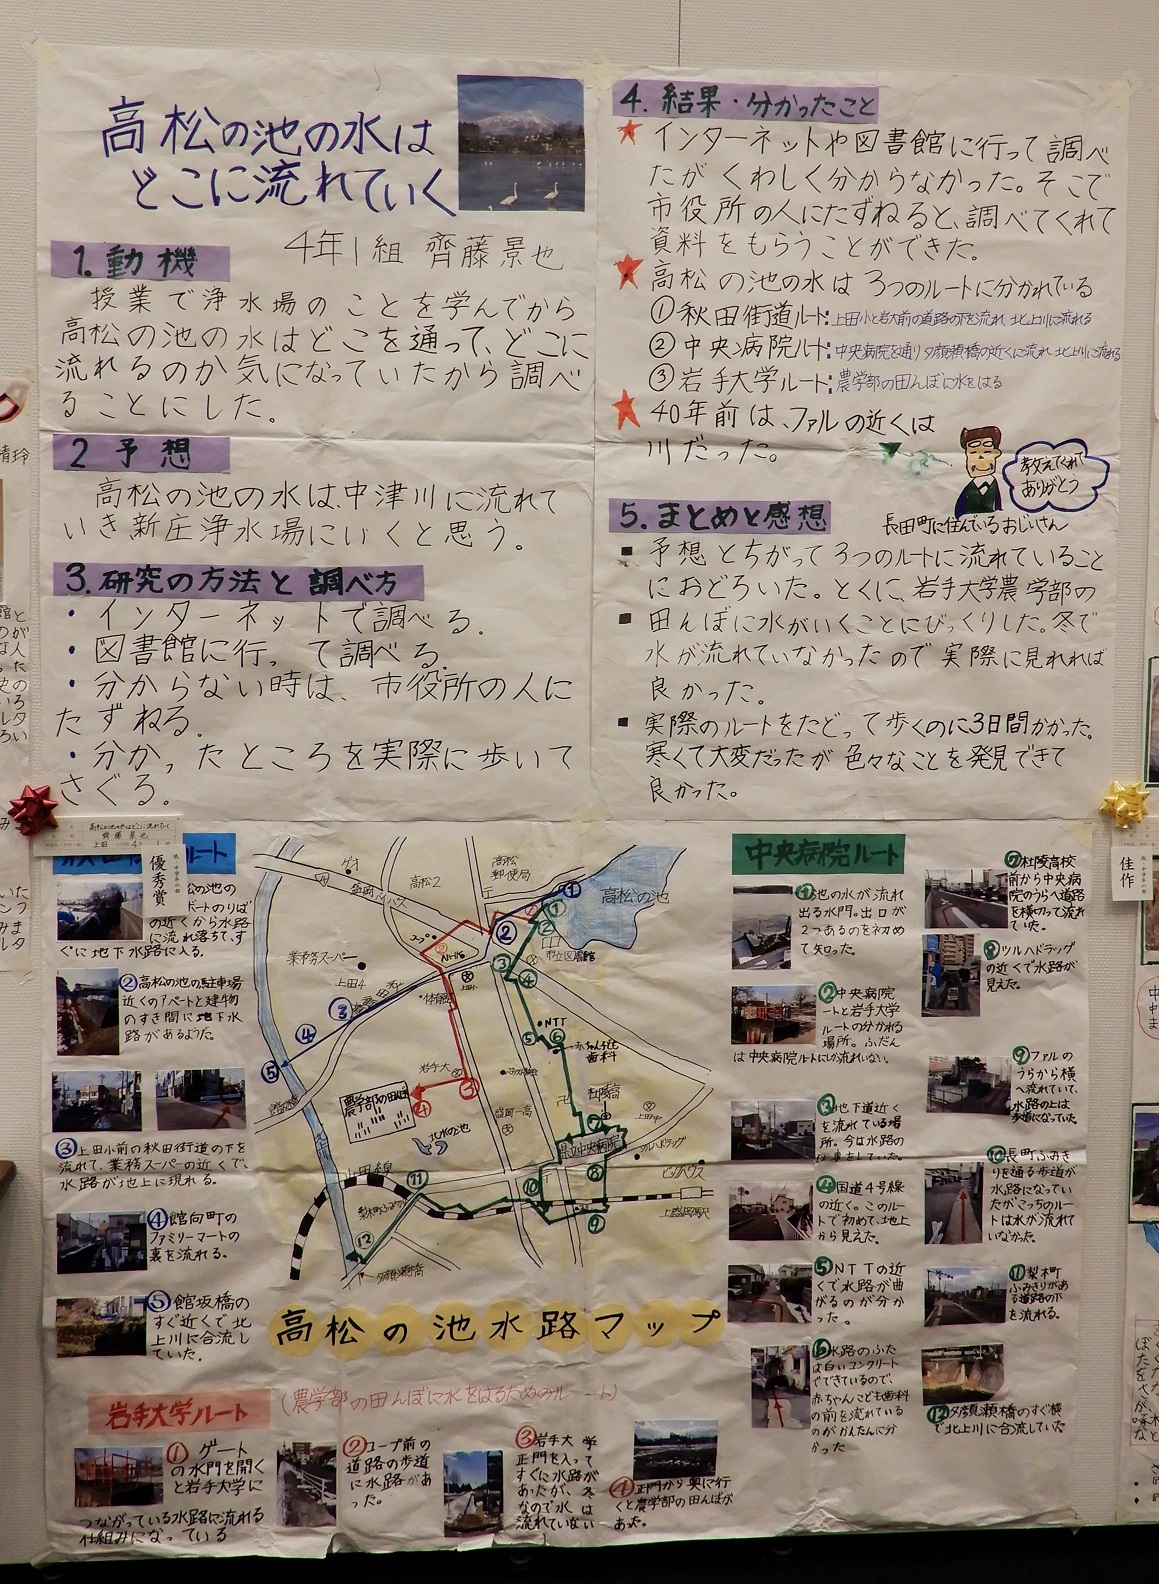 高松の池の水は
どこに流れていく
4年1組 齊藤景也
1.動機
授業で浄水場のことを学んでから
高松の池の水はどこを通って、どこに
流れるのか気になっていたから調べ
ることにした。
2 予想
高松の池の水は、中津川に流れて
いき新庄浄水場にいくと思う。
3.研究の方法と調べ方
・インターネットで調べる。
・図書館に行って調べる。
・分からない時は、市役所の人に
たずねる。
・分かったところを実際に歩いて
さぐる。
4.結果・分かったこと
★インターネットや図書館に行って調べ
たがくわしく分からなかった。そこで
市役所の人にたずねると、調べてくれて
資料をもらうことができた。
★高松の池の水は3つのルートに分かれている
①秋田街道ルート:上田小と岩大前の道路の下を流れ、北上川に流れる
②中央病院ルート:中央病院を通り夕顔瀬橋の近くに流れ北上川に流れる
③岩手大学ルート:農学部の田んぼに水をはる
★40年前は、ファルの近くは
川だった。
教えてくれて
ありがとう
長田町に住んでいるおじいさん
5.まとめと感想
■予想とちがって3つのルートに流れていること
におどろいた。とくに、岩手大学農学部の
■田んぼに水がいくことにびっくりした。冬で
水が流れていなかったので実際に見れれば
良かった。
■実際のルートをたどって歩くのに3日間かかった。
寒くて大変だったが色々なことを発見できて
良かった。
高松の池の水はどこに流れていく
齊藤景也
上田 4 1
優秀賞
佳作
ルート
池の
ボートのりば
の近くから水路
に流れ落ちて、す
ぐに地下水路に入る。
②高松の池の駐車場
近くのアパートと建物
のすき間に地下水
路があるようだ。
③上田小前の秋田街道の下を
流れて、業務スーパーの近くで、
水路が地上に現れる。
④館向町の
ファミリーマートの
裏を流れる。
⑤館坂橋の
すぐ近くで北
上川に合流し
ていた。
ゲオ
高松2
高松
郵便局
高松の池
業務スーパー
上田4
上田小
体育館
市立図書館
NTT
赤ちゃんこども
歯科
岩手大
農学部の田んぼ
北水の池
盛岡一高
杜陵高
上田中
県立中央病院
ツルハドラッグ
上田線
上盛岡駅
夕顔瀬橋
高松の池水路マップ
中央病院ルート
①池の水が流れ
出る水門。出口が
2つあるのを初め
て知った。
②中央病院
ルートと岩手大学
ルートの分かれる
場所。ふだん
は中央病院ルートにしか流れいない。
③地下道近く
を流れている場
所。今は水路の
④国道4号線
の近く。このルー
トで初めて、地上
から見えた。
⑤NTTの近
くで水路が曲
がるのが分か
った。
⑥水路のふた
は白いコンクリート
でできているので、
赤ちゃんこども歯科
の前を流れている
のがかんたんに分
かった
⑦杜陵高校
前から中央病
院のうらへ道路
を横切って流れ
ていた。
⑧ツルハドラッグ
の近くで水路が
見えた。
⑨ファルの
うらから横
へ流れていて、
水路の上は
歩道になっていた
⑩長町ふみき
りを通る歩道が
水路になってい
たがこっちのルー
トは水が流れて
いなかった。
⑪梨木町
ふみきりがあ
る道路の下
を流れる。
⑫夕顔瀬橋のすぐ横
で北上川に合流していた
岩手大学ルート
(農学部の田んぼに水をはるためのルート)
①ゲート
の水門を開く
と岩手大学に
つながっている水路に流れる
仕組みになっている
②コープ前の
道路の歩道
に水路があ
った。
③岩手大学
正門を入って
すぐに水路が
あったが、冬
なので水は
流れていない
④正門から奥に行
くと農学部の田んぼが
あった。